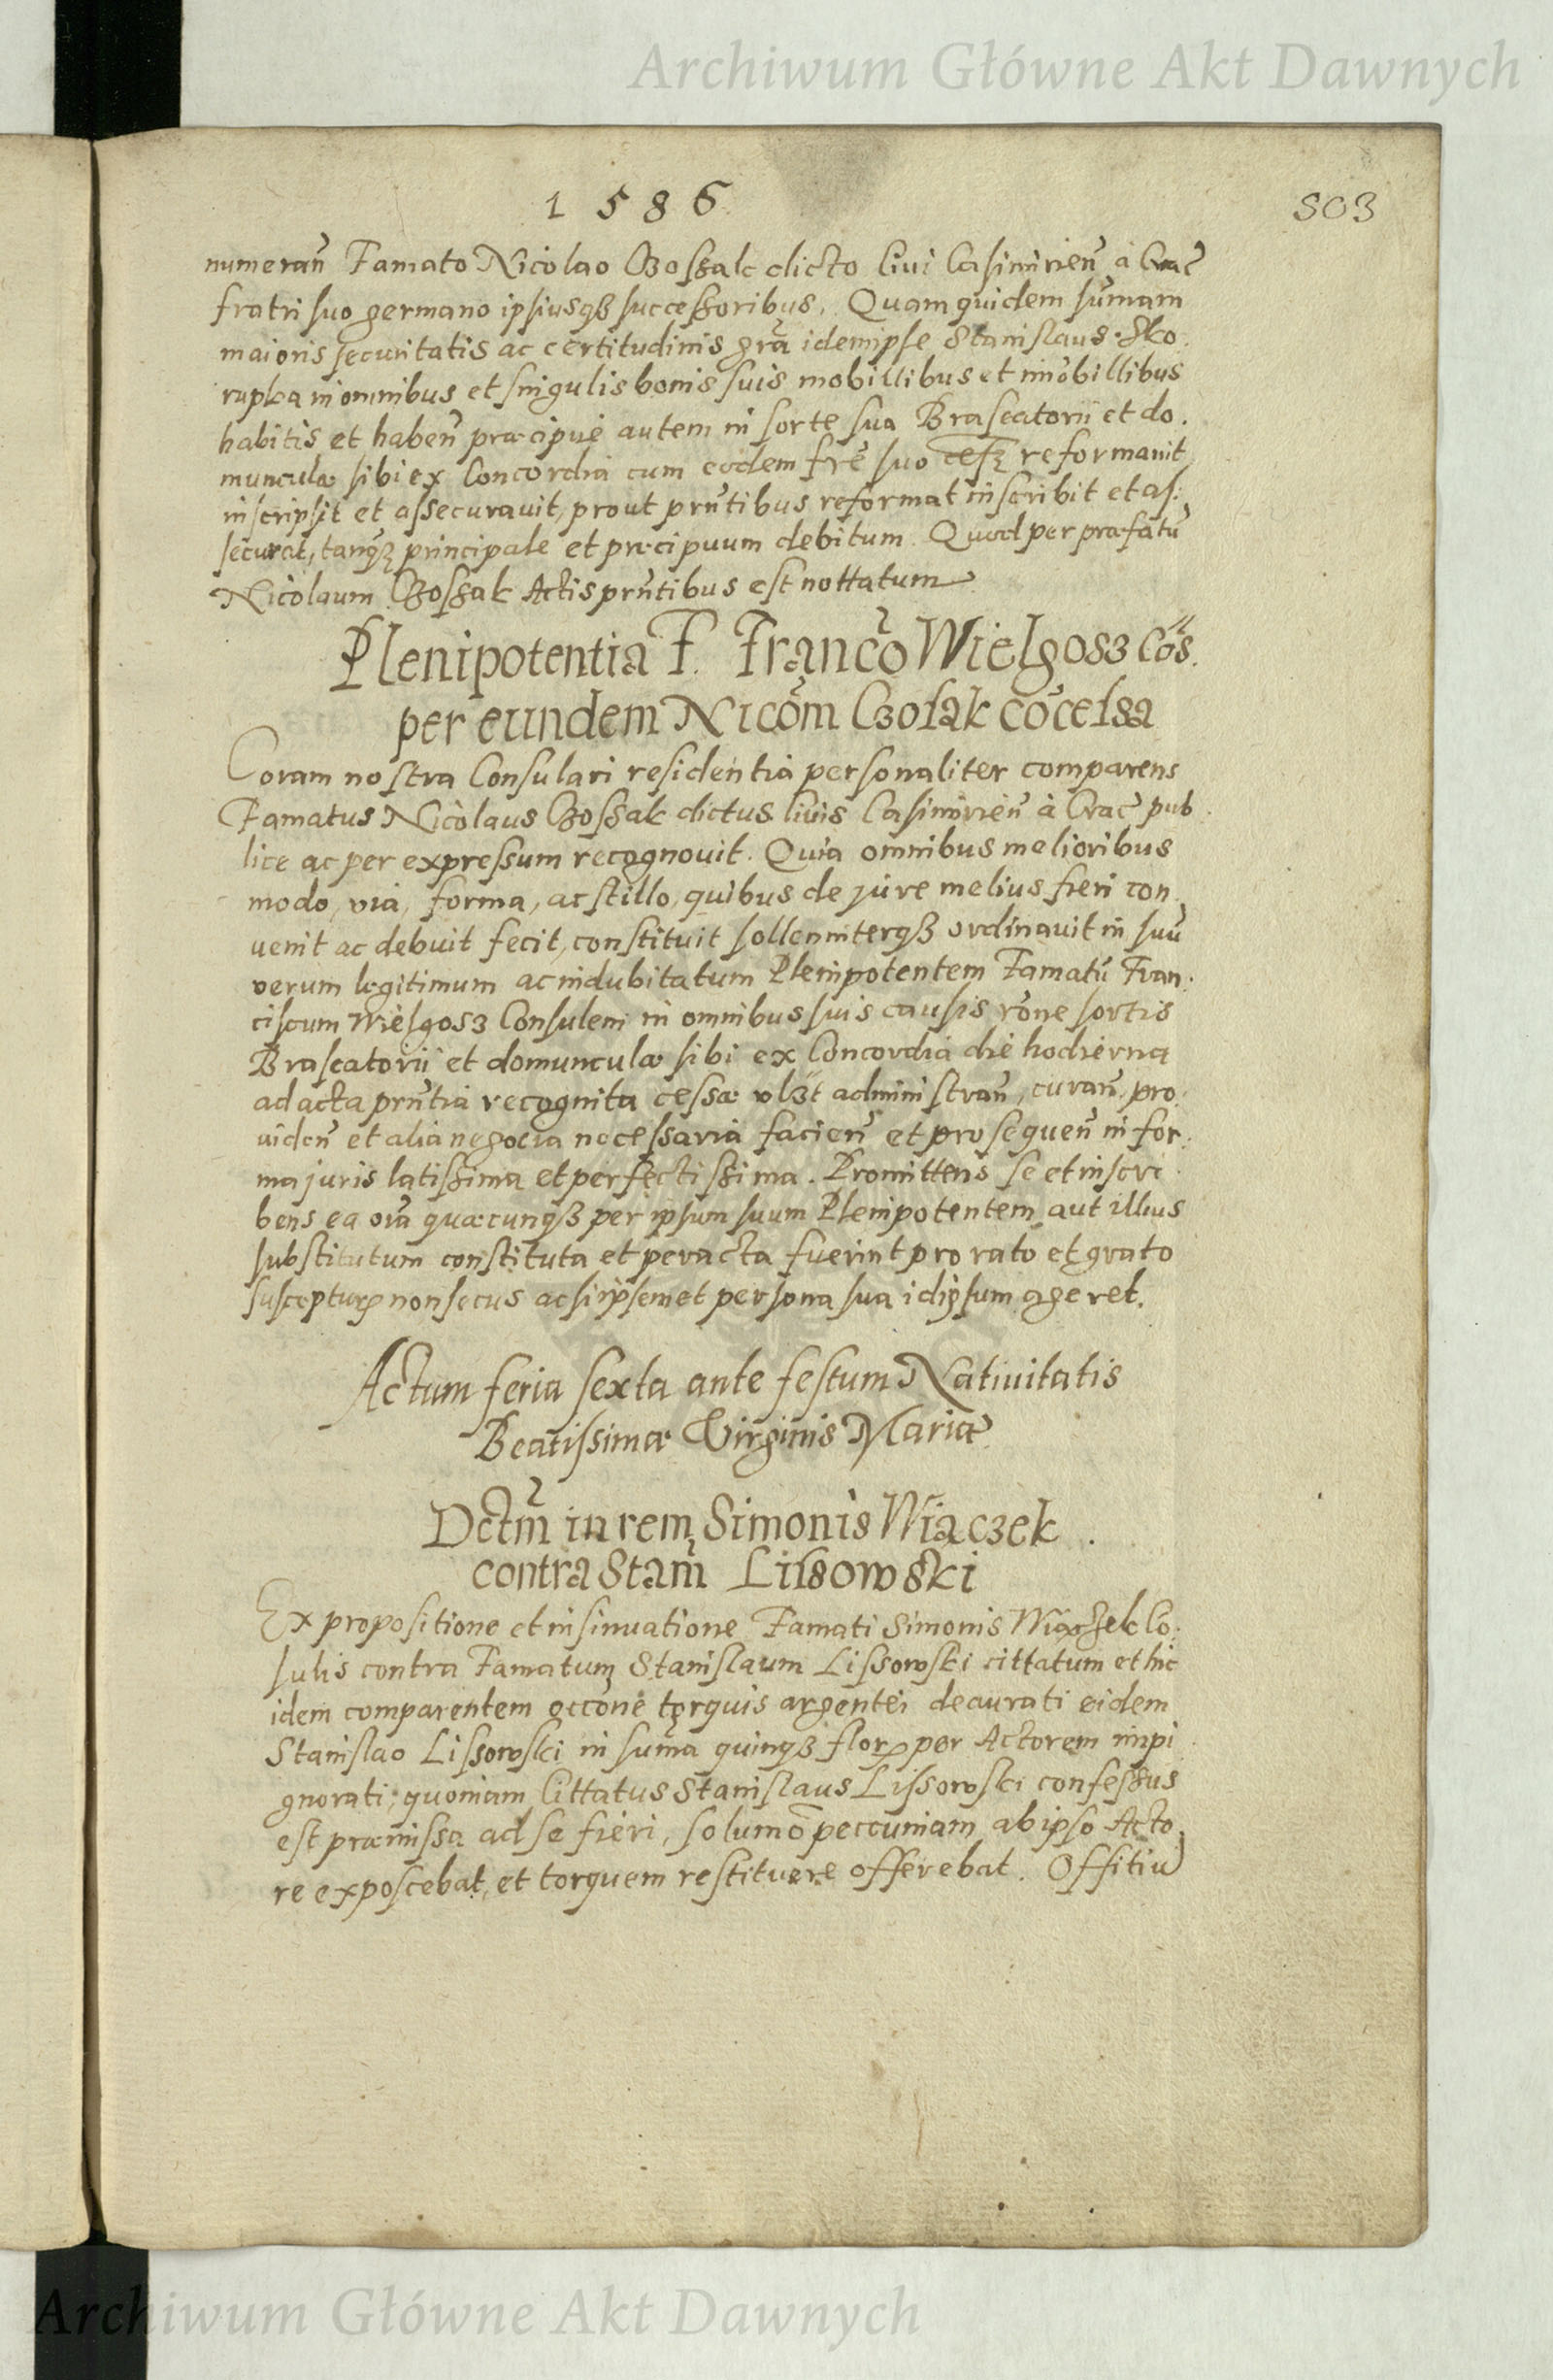 Archiwum Główne Akt Dawnych
1586
503
numerań Famato Nicolao Czoſſak dicto Civi Caſimirień à Crac̄
fratri ſuo germano ipſiusqȝ ſucceſſoribus. Quam quidem ſum̄am
maioris ſecuritatis ac certitudinis gr̄a idemipſe Staniſlaus Sko
rupka in omnibus et ſingulis bonis ſuis mobillibus et im̄obillibus
habitis et habeń præcipue autem in ſorte ſua Braſeatorii et do.
munculæ ſibi ex Concordia cum eodem fr̄e ſuo ceſſ reformavit
inſcripſit et aſſecuravit, prout pr̄ntibus reformat inſcribit et aſ:
ſecurat, tanqȝ principale et præcipuum debitum. Quod per præfatū
Nicolaum Czoſſak Actis pr̄ntibus eſt nottatum
Plenipotentia F. Franc̄o Wielgosz Cōs.
per eundem Nicōm Czoſak cōceſsa
Coram noſtra Conſulari reſidentia perſonaliter comparens
Famatus Nicolaus Czoſſak dictus Civis Caſimirień à Crac̄ pub
lice ac per expreſſum recognovit. Quia omnibus melioribus
modo, via, forma, ac ſtillo, quibus de jure melius fieri con
venit ac debuit fecit, conſtituit ſollenniterqȝ ordinavit in ſuū
verum legitimum ac indubitatum Plenipotentem Famatū Fran:
ciſcum Wielgosz Conſulem in omnibus ſuis cauſis rōne ſortis
Braſeatorii et domunculæ ſibi ex Concordia die hodierna
ad acta pr̄ntia recognita ceſſæ vlȝt adminiſtrań, curań, pro
videń et alia negocia neceſſaria facień et proſequeń in for:
ma juris latiſſima et perfectiſſima. Promittens ſe et inſcri
bens ea oīa quæcunqȝ per ipſum ſuum Plenipotentem aut illius
ſubſtitutum conſtituta et peracta fuerint pro rato et grato
ſuſcepturȝ non ſecus ac ſi ipſemet perſona ſua id ipſum ageret.
Actum feria ſexta ante feſtum Nativitatis
Beatiſſimæ Virginis Mariæ
Dctm̄ in rem Simonis Wiączek
contra Stam̄ Liſsowſki
Ex propoſitione et inſinuatione Famati Simonis Wiączek Co:
ſulis contra Famatum Staniſlaum Liſſowſki cittatum et hic
idem comparentem occ̄one torquis argentei deaurati eidem
Staniſlao Liſſowſki in ſum̄a quinqȝ florȝ per Actorem impi
gnorati; quoniam Cittatus Staniſlaus Liſſowſki confeſſus
eſt præmiſſa ad ſe fieri, ſolum̄o peccuniam ab ipſo Acto
re expoſcebat, et torquem reſtituere offerebat. Offitiū
Archiwum Główne Akt Dawnych